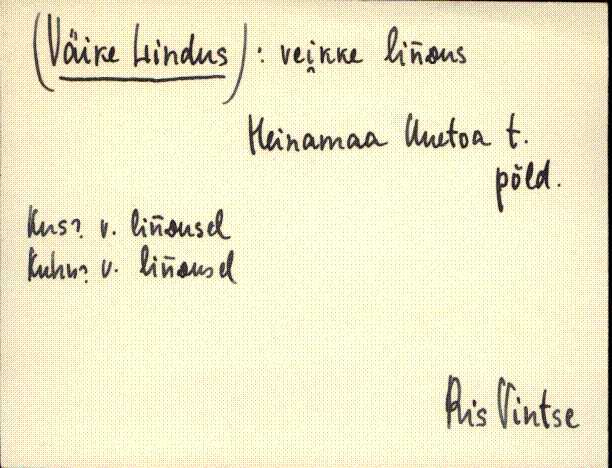 (Väike Lindus) : vei̯kke liñдus
Heinamaa Uuetoa t.
põld.
Kus? v. liñдusel
Kuhu? v. liñдusel
Ris Vintse